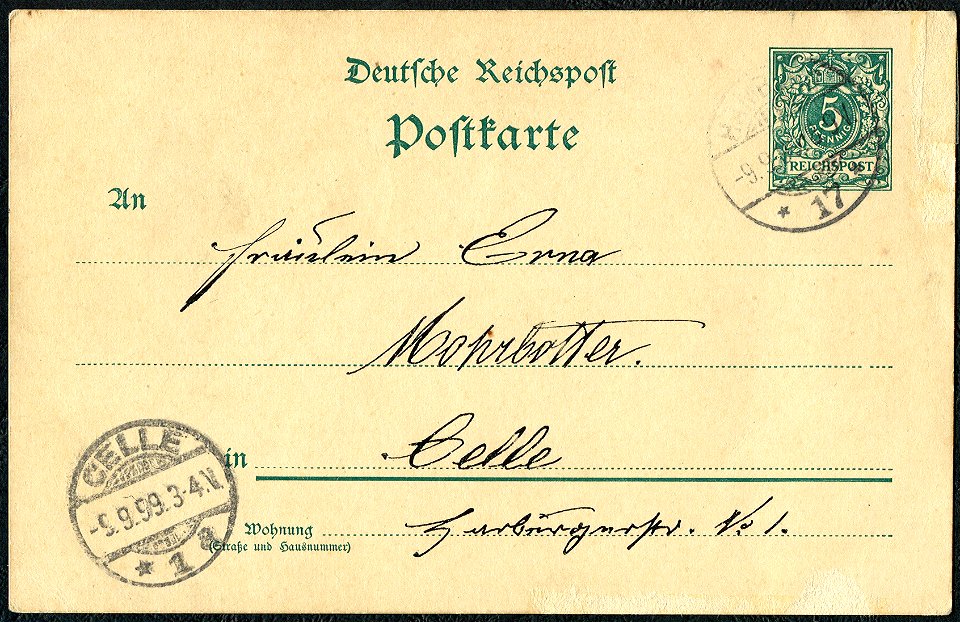 Deutsche Reichspost
Postkarte
5
PFENNIG
REICHSPOST
-9.9.
* 17
An
Fräulein Erna
Mohrbotter.
in Celle
Wohnung
(Straße und Hausnummer)
Harburgerstr. No 1.
CELLE
-9.9.99.3-4.N
* 1 a